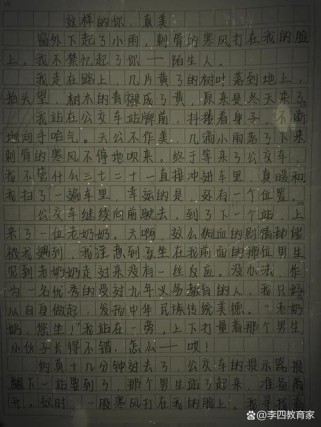 这样的你，真美
窗外下起了小雨，刺骨的寒风打在我的脸
上，我不禁忆起了你——陌生人。
我走在路上，几片黄了的树叶落到地上，
抬头望，树木的青 成了黄，原来是冬天来了。
我站在公交车站牌前，抖擞着身子，不断
地向手哈气。天公不作美，几滴小雨落了下来
刺骨的寒风不停地吹来。终于等来了公交车，
我不管什么三七二十一直接冲进车里，真暖和
我扫了一遍车里，幸运的是，还有一个位置。
公交车继续向前驶去，到了下一个站，上
来了一位老奶奶。天啊，这么 血的剧情却给
被我遇到，我注意到了坐在我前面的那位男生
见到老奶奶走过来没有一丝反应。没办法，作
为一名优秀的受过九年义务教育的人，我只好
从自身做起，发扬中华民族传统美德。"老奶
奶，您坐！"我站在一旁，上下打量着那个男生
小伙子长得不错，怎么——唉！
约莫十几分钟过去了，公交车的提示器报
下一站要到了，那个男生站了起来，准备离
开，这时，一股寒风打在我的脸上，我寻找着
@李四教育家